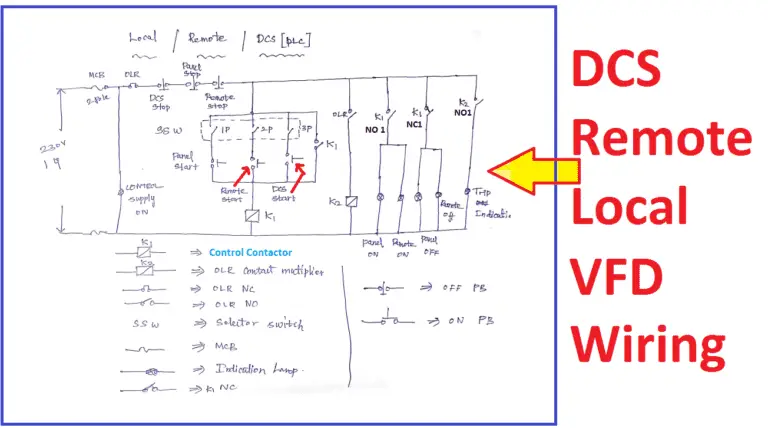 Local / Remote / DCS [PLC]
MCB
OLR
Panel
Stop
2 pole
DCS
Stop
Remote
Stop
SSW
1P
2P
3P
K1
OLR
K1
NO 1
K1
NC1
K2
NO1
230V
1 φ
Panel
Start
Remote
Start
DCS
Start
CONTROL
Supply
ON
K1
K2
Trip
Indicatio
Panel
ON
Remote
ON
Panel
OFF
Remote
off
K1 ⇒ Control Contactor
K2 ⇒ OLR Contact multiplier
⇒ OLR NC
⇒ OLR NO
SSW ⇒ Selector switch
⇒ MCB
⇒ Indication Lamp.
⇒ K1 NC
⇒ OFF PB
⇒ ON PB
DCS
Remote
Local
VFD
Wiring